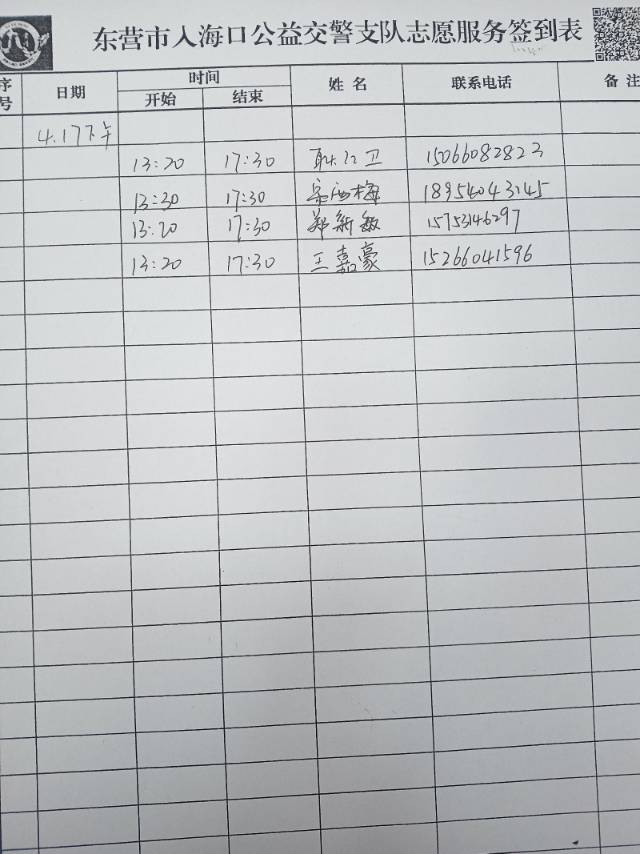 东营市入海口公益交警支队志愿服务签到表
序号 日期 时间 姓名 联系电话 备注
开始 结束
4.17下午
13:20 17:30 耿江卫 15066082823
13:30 17:30 宗海梅 18954043145
13:20 17:30 郑新敏 15753146297
13:20 17:30 王嘉豪 15266041596